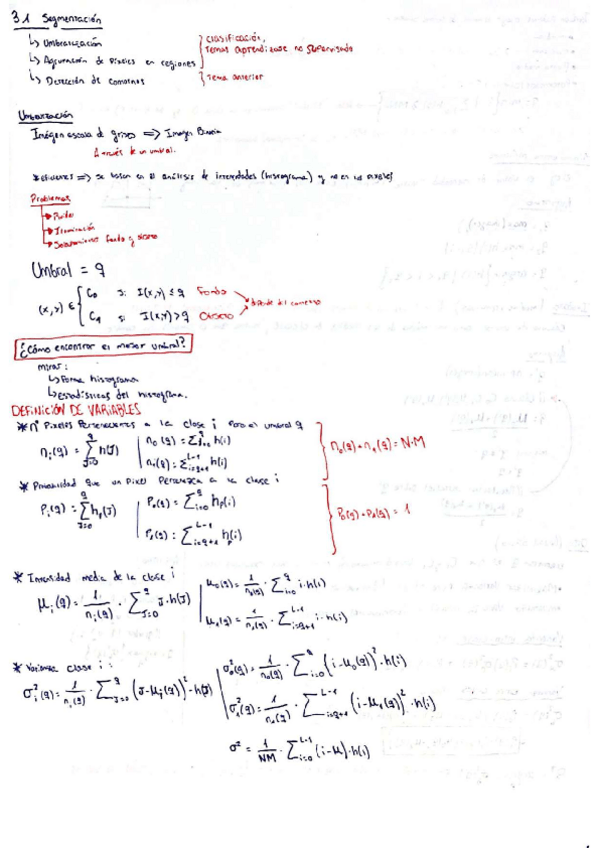 3.1 Segmentación
↳ Umbralización
↳ Agrupación de Píxeles en regiones
} clasificación,
temas aprendizaje no supervisado
↳ Detección de contornos } tema anterior
Umbralización
Imágen escala de grises => Imagen Binaria
A través de un umbral.
* eficientes => se basan en el análisis de intensidades (histograma) y no en los píxeles
Problemas
→ Ruido
→ Iluminación
→ Solapamiento fondo y objeto
Umbral = q
(x,y) ∈ { C₀ si I(x,y) ≤ q Fondo
C₁ si I(x,y) > q Objeto
depende del contexto
¿Cómo encontrar el mejor umbral?
mirar:
↳ Forma histograma
↳ estadísticas del histograma.
DEFINICIÓN DE VARIABLES
* nº Píxeles Pertenecientes a la clase i Para el umbral q
nᵢ(q) = Σ_{J=0}^{q} h(J) | n₀(q) = Σ_{i=0}^{q} h(i)
n₁(q) = Σ_{i=q+1}^{L-1} h(i)
n₀(q) + n₁(q) = N·M
* Probabilidad que un Píxel Pertenezca a la clase i
Pᵢ(q) = Σ_{J=0}^{q} hₚ(J) | P₀(q) = Σ_{i=0}^{q} hₚ(i)
P₁(q) = Σ_{i=q+1}^{L-1} hₚ(i)
P₀(q) + P₁(q) = 1
* Intensidad media de la clase i
μᵢ(q) = 1/nᵢ(q) · Σ_{J=0}^{q} J·h(J) | μ₀(q) = 1/n₀(q) · Σ_{i=0}^{q} i·h(i)
μ₁(q) = 1/n₁(q) · Σ_{i=q+1}^{L-1} i·h(i)
* Varianza clase i:
σᵢ²(q) = 1/nᵢ(q) · Σ_{J=0}^{q} (J-μᵢ(q))²·h(J) | σ₀²(q) = 1/n₀(q) · Σ_{i=0}^{q} (i-μ₀(q))²·h(i)
σ₁²(q) = 1/n₁(q) · Σ_{i=q+1}^{L-1} (i-μ₁(q))²·h(i)
σ² = 1/NM · Σ_{i=0}^{L-1} (i-μ)·h(i)